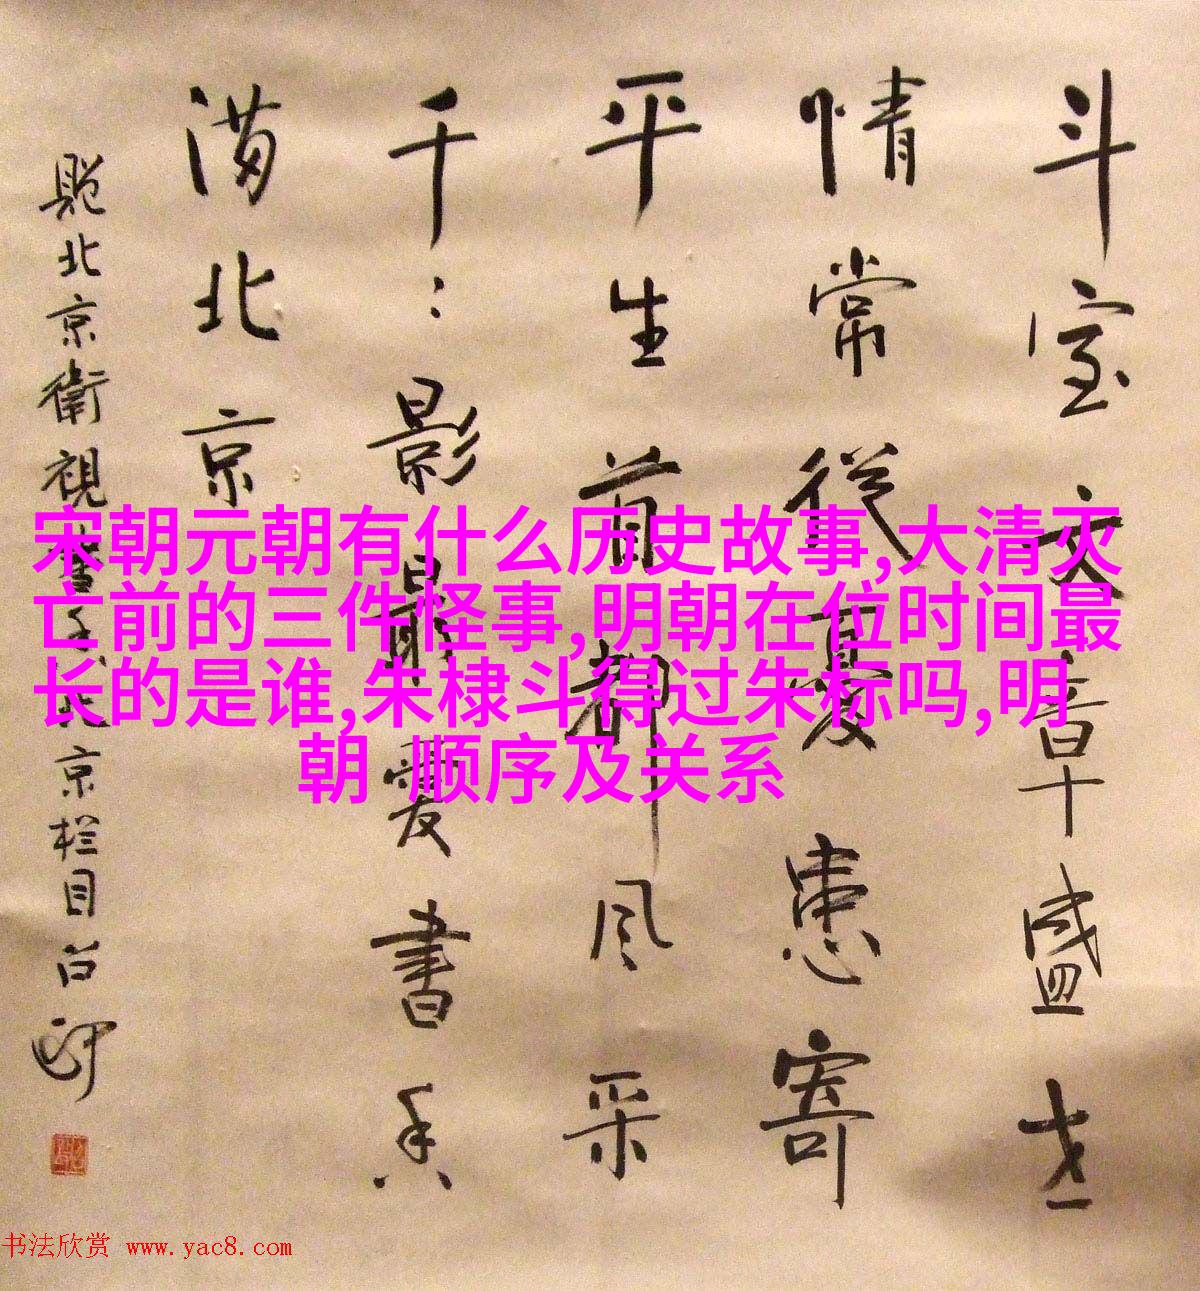 斗室文章盛世
情常從憂患寄
平生首都風采
千:影最愛書香
满北京
题北京衛視書香北京栏目
宋朝元朝有什么历史故事,大清灭
亡前的三件怪事,明朝在位时间最
长的是谁,朱棣斗得过朱标吗,明
朝 顺序及关系
书法欣赏 www.yac8.com